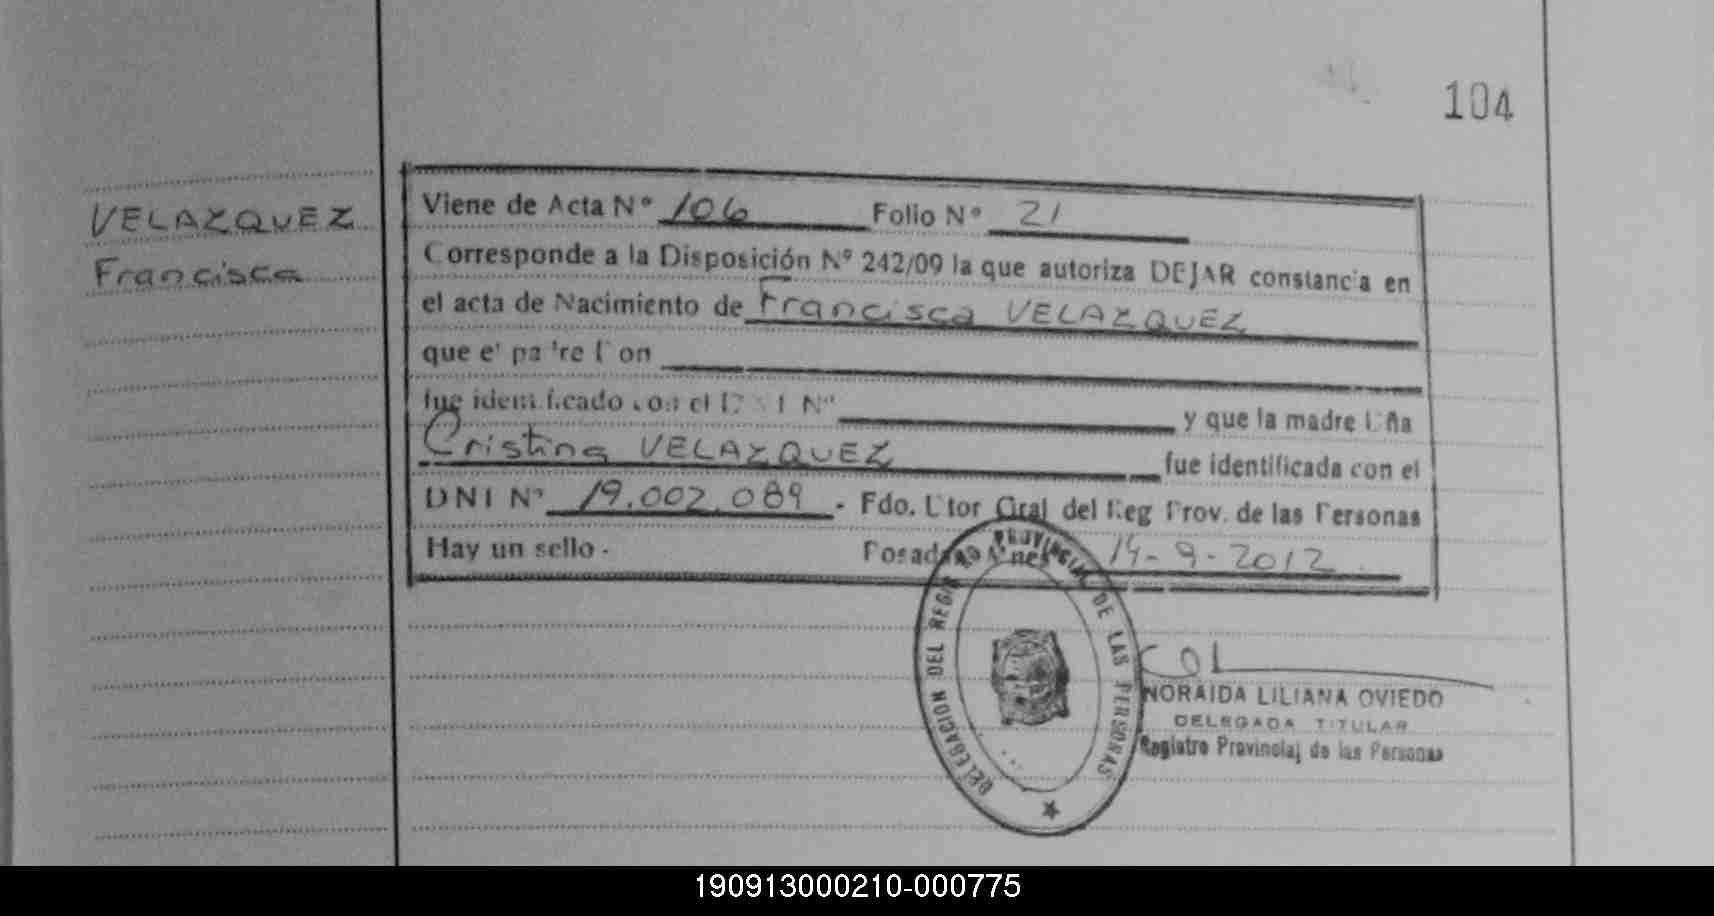 104
VELAZQUEZ
Francisca
Viene de Acta Nº 106 Folio Nº 21
Corresponde a la Disposición Nº 242/09 la que autoriza DEJAR constancia en
el acta de Nacimiento de Francisca VELAZQUEZ
que el padre Don
fue identificado con el DNI Nº y que la madre Dña
Cristina VELAZQUEZ fue identificada con el
DNI Nº 19.002.089 - Fdo. Dtor Gral del Reg Prov. de las Personas
Hay un sello - Posadas Mnes 14-9-2012
DELEGACION DEL REGISTRO PROVINCIAL DE LAS PERSONAS
NORAIDA LILIANA OVIEDO
DELEGADA TITULAR
Registro Provincial de las Personas
190913000210-000775